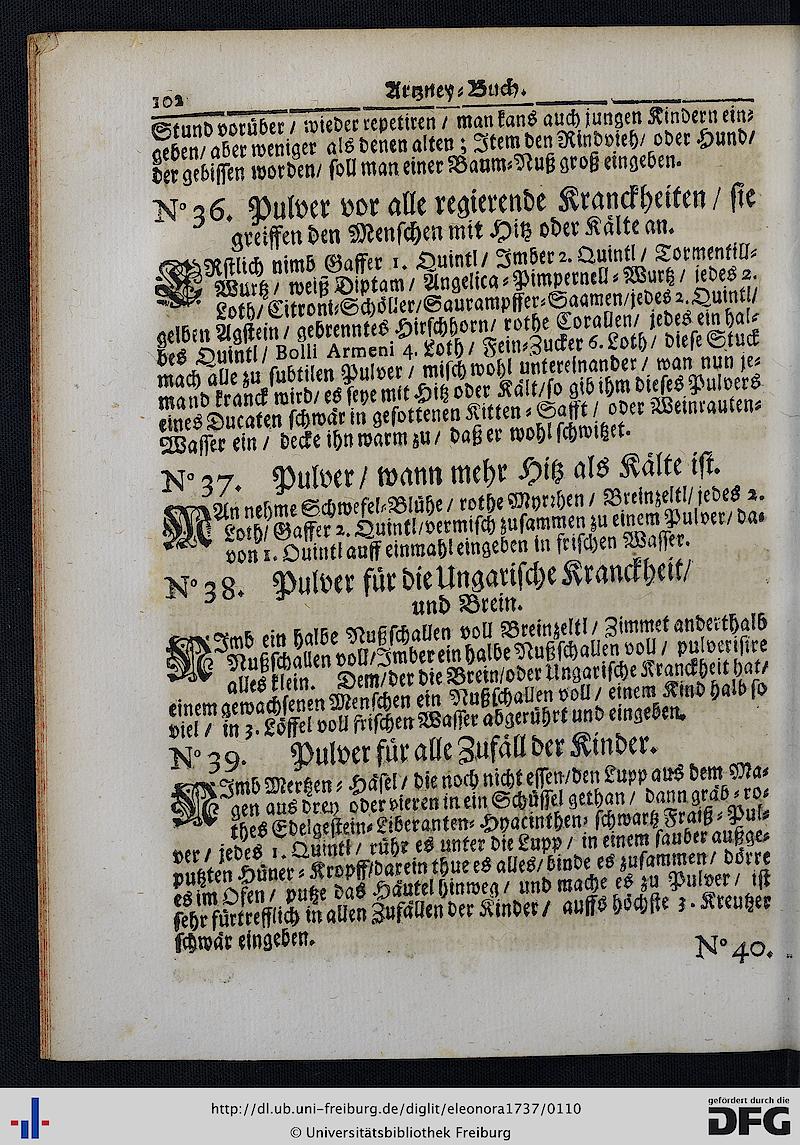 102 Artzney-Buch.
Stund vorüber / wieder repetiren / man kans auch jungen Kindern ein-
geben / aber weniger als denen alten ; Item den Rindvieh / oder Hund /
der gebissen worden / soll man einer Baum-Nuß groß eingeben.
N° 36. Pulver vor alle regierende Kranckheiten / sie
greiffen den Menschen mit Hitz oder Kälte an.
ERstlich nimb Gaffer 1. Quintl / Imber 2. Quintl / Tormentill-
Wurtz / weiß Diptam / Angelica-Pimpernell-Wurtz / jedes 2.
Loth / Citroni-Schöller / Saurampffer-Saamen / jedes 2. Quintl /
gelben Agstein / gebrenntes Hirschhorn / rothe Corallen / jedes ein hal-
bes Quintl / Bolli Armeni 4. Loth / Fein-Zucker 6. Loth / diese Stuck
mach alle zu subtilen Pulver / misch wohl untereinander / wan nun je-
mand kranck wird / es seye mit Hitz oder Kält / so gib ihm dieses Pulvers
eines Ducaten schwär in gesottenen Kitten-Safft / oder Weinrauten-
Wasser ein / decke ihn warm zu / daß er wohl schwitzet.
N° 37. Pulver / wann mehr Hitz als Kälte ist.
MAn nehme Schwefel-Blühe / rothe Myrrhen / Breinzeltl / jedes 2.
Loth / Gaffer 2. Quintl / vermisch zusammen zu einem Pulver / da-
von 1. Quintl auff einmahl eingeben in frischen Wasser.
N° 38. Pulver für die Ungarische Kranckheit /
und Brein.
NImb ein halbe Nußschallen voll Breinzeltl / Zimmet anderthalb
Nußschallen voll / Imber ein halbe Nußschallen voll / pulverisire
alles klein. Dem / der die Brein / oder Ungarische Kranckheit hat /
einem gewachsenen Menschen ein Nußschallen voll / einem Kind halb so
viel / in 3. Löffel voll frischen Wasser abgerührt und eingeben.
N° 39. Pulver für alle Zufäll der Kinder.
NImb Mertzen-Häsel / die noch nicht essen / den Lupp aus dem Ma-
gen aus drey oder vieren in ein Schüssel gethan / dann grab-ro-
thes Edelgestein-Liberanten-Hyacinthen-schwartz Fraiß-Pul-
ver / jedes 1. Quintl / rühr es unter die Lupp / in einem sauber außge-
putzten Hüner-Kropff / darein thue es alles / binde es zusammen / dörre
es im Ofen / putze das Häutel hinweg / und mache es zu Pulver / ist
sehr fürtrefflich in allen Zufällen der Kinder / auffs höchste 3. Kreutzer
schwär eingeben.
N° 40.
http://dl.ub.uni-freiburg.de/diglit/eleonora1737/0110
© Universitätsbibliothek Freiburg
gefördert durch die
DFG